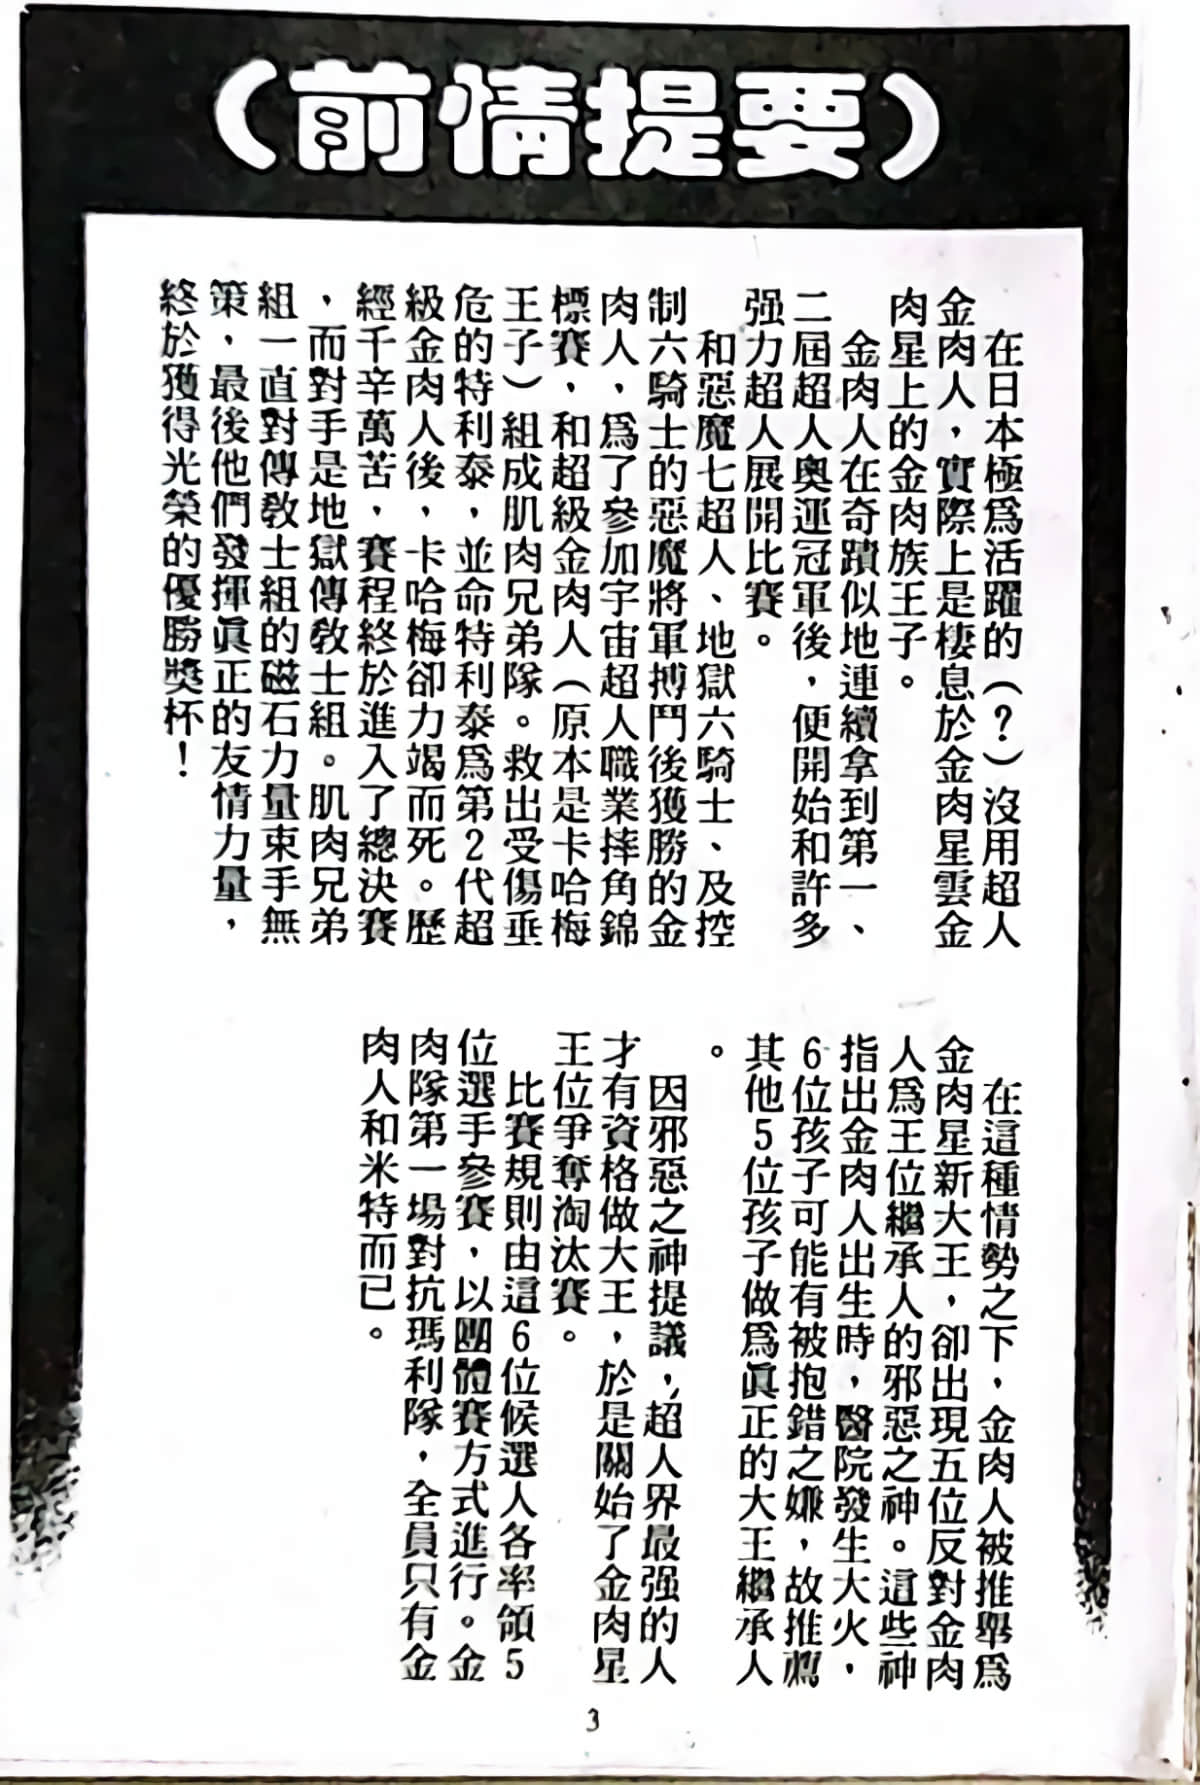 （前情提要）
在日本極為活躍的（？）沒用超人
金肉人，實際上是棲息於金肉星雲金
肉星上的金肉族王子。
金肉人在奇蹟似地連續拿到第一、
二屆超人奧運冠軍後，便開始和許多
强力超人展開比賽。
和惡魔七超人、地獄六騎士、及控
制六騎士的惡魔將軍搏鬥後獲勝的金
肉人，為了參加宇宙超人職業摔角錦
標賽，和超級金肉人（原本是卡哈梅
王子）組成肌肉兄弟隊。救出受傷垂
危的特利泰，並命特利泰為第2代超
級金肉人後，卡哈梅卻力竭而死。歷
經千辛萬苦，賽程終於進入了總決賽
，而對手是地獄傳教士組。肌肉兄弟
組一直對傳教士組的磁石力量束手無
策，最後他們發揮眞正的友情力量，
終於獲得光榮的優勝獎杯！
在這種情勢之下，金肉人被推舉為
金肉星新大王，卻出現五位反對金肉
人為王位繼承人的邪惡之神。這些神
指出金肉人出生時，醫院發生大火，
6位孩子可能有被抱錯之嫌，故推薦
其他5位孩子做為眞正的大王繼承人
。
因邪惡之神提議，超人界最强的人
才有資格做大王，於是關始了金肉星
王位爭奪淘汰賽。
比賽規則由這6位候選人各率領5
位選手參賽，以團體賽方式進行。金
肉隊第一場對抗瑪利隊，全員只有金
肉人和米特而已。
3